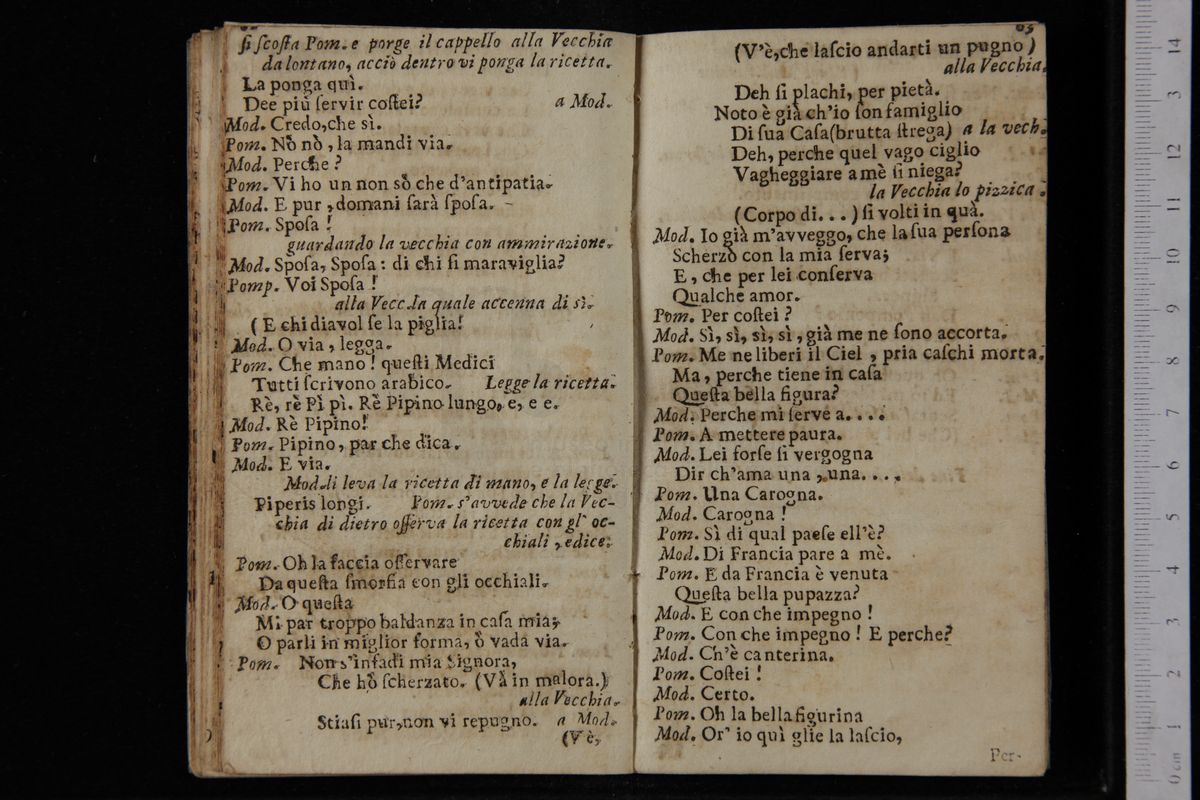 ſi ſcoſta Pom. e porge il cappello alla Vecchia
da lontano, acciò dentro vi ponga la ricetta.
La ponga quì.
Dee più ſervir coſtei? a Mod.
Mod. Credo, che sì.
Pom. Nò nò, la mandi via.
Mod. Perche?
Pom. Vi ho un non sò che d'antipatia.
Mod. E pur, domani ſarà ſpoſa.
Pom. Spoſa!
guardando la vecchia con ammirazione.
Mod. Spoſa, Spoſa: di chi ſi maraviglia?
Pomp. Voi Spoſa!
alla Vecc. la quale accenna di sì.
(E chi diavol ſe la piglia!
Mod. O via, legga.
Pom. Che mano! queſti Medici
Tutti ſcrivono arabico. Legge la ricetta.
Rè, rè Pì pì. Rè Pipino lungo, e, e e.
Mod. Rè Pipino!
Pom. Pipino, par che dica.
Mod. E via.
Mod. li leva la ricetta di mano, e la legge.
Piperis longi. Pom. s'avvede che la Vec-
chia di dietro oſſerva la ricetta con gl' oc-
chiali, e dice.
Pom. Oh la faccia oſſervare
Da queſta ſmorfia con gli occhiali.
Mod. O queſta
Mi par troppo baldanza in caſa mia;
O parli in miglior forma, ò vada via.
Pom. Non s'infadi mia Signora,
Che hò ſcherzato. (Và in malora.)
alla Vecchia.
Stiaſi pur, non vi repugno. a Mod.
(V'è,
63
(V'è, che laſcio andarti un pugno)
alla Vecchia.
Deh ſi plachi, per pietà.
Noto è già ch'io ſon famiglio
Di ſua Caſa (brutta ſtrega) a la vech.
Deh, perche quel vago ciglio
Vagheggiare a mè ſi niega?
la Vecchia lo pizzica.
(Corpo di...) ſi volti in quà.
Mod. Io già m'avveggo, che la ſua perſona
Scherzò con la mia ſerva;
E, che per lei conſerva
Qualche amor.
Pom. Per coſtei?
Mod. Sì, sì, sì, sì, già me ne ſono accorta.
Pom. Me ne liberi il Ciel, pria caſchi morta.
Ma, perche tiene in caſa
Queſta bella figura?
Mod. Perche mi ſerve a....
Pom. A mettere paura.
Mod. Lei forſe ſi vergogna
Dir ch'ama una, una....
Pom. Una Carogna.
Mod. Carogna!
Pom. Sì di qual paeſe ell'è?
Mod. Di Francia pare a mè.
Pom. E da Francia è venuta
Queſta bella pupazza?
Mod. E con che impegno!
Pom. Con che impegno! E perche?
Mod. Ch'è canterina.
Pom. Coſtei!
Mod. Certo.
Pom. Oh la bella figurina
Mod. Or' io quì glie la laſcio,
Per-
14
13
12
11
10
9
8
7
6
5
4
3
2
1
0 cm
3
4